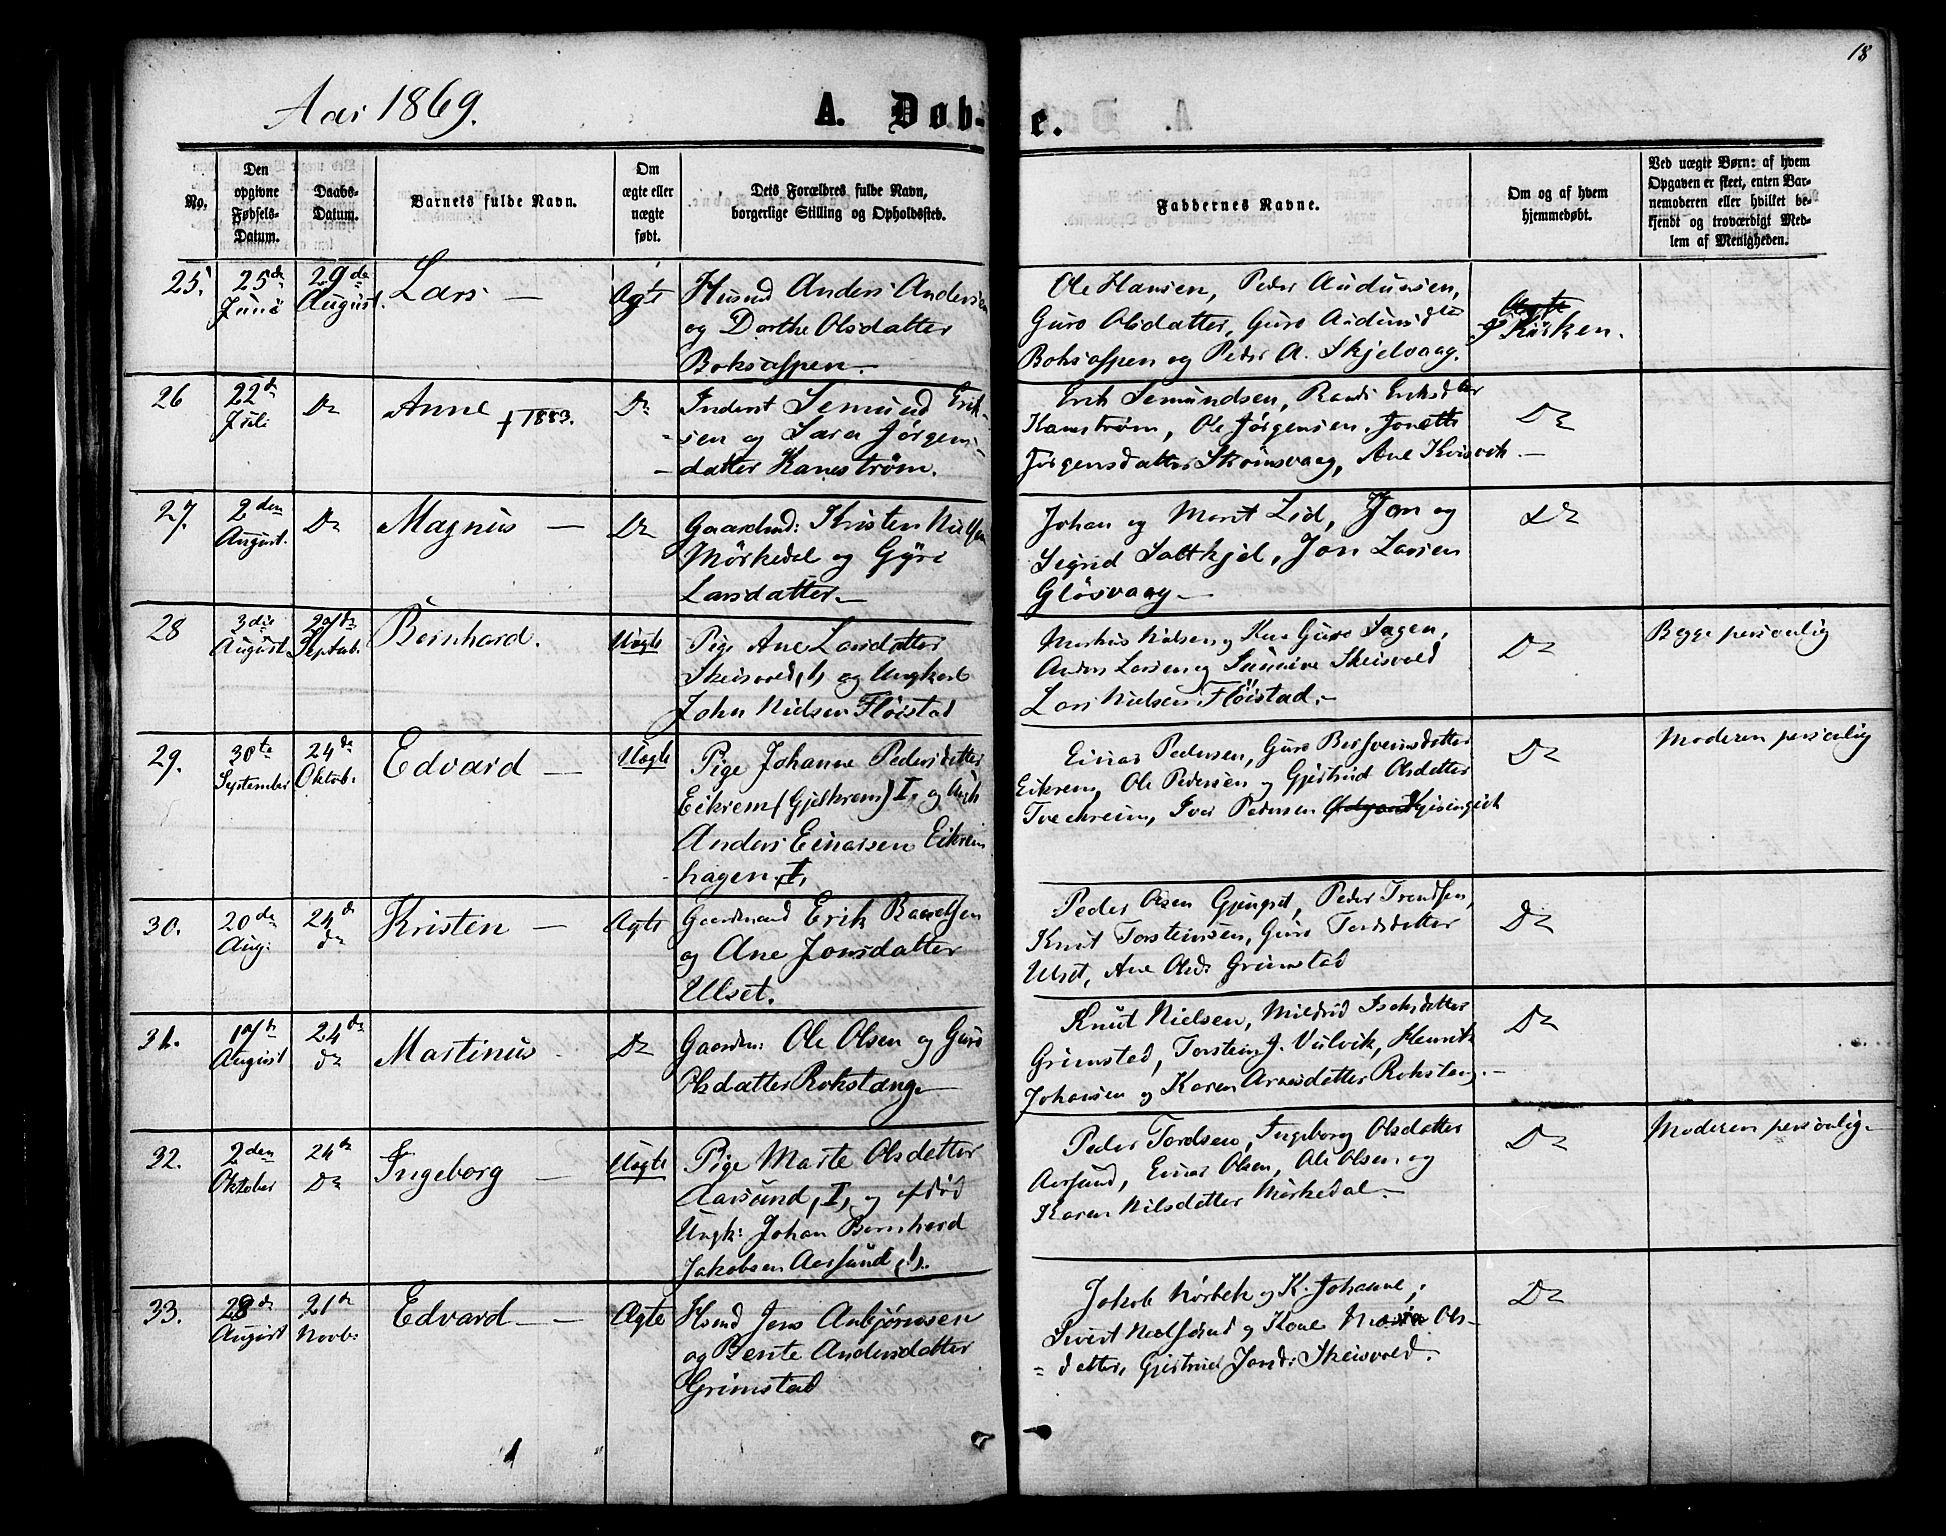 18
Aar 1869.
A. Døb-
e.
No.
Den opgivne Fødsels-Datum.
Daabs-Datum.
Barnets fulde Navn.
Om ægte eller uægte født.
Dets Forældres fulde Navn, borgerlige Stilling og Opholdssted.
Faddernes Navne.
Om og af hvem hjemmedøbt.
Ved uægte Børn: af hvem Opgaven er skeet, enten Barnemoderen eller hvilket bekjendt og troværdigt Medlem af Menigheden.
25.
25de Juni
29de August.
Lars —
Ægte
Husmd Anders Andersen
og Dorthe Olsdatter
Boksaspen.—
Ole Hansen, Peder Audunsen,
Guro Olsdatter, Guro Audunsdtr
Boksaspen og Peder A. Skjelvaag.
Kirken.
26
22de Juli
Do
Anne † 1883.
Do
Inderst Semund Erik-
sen og Sara Jørgens-
datter Kanestrøm.
Erik Semundsen, Randi Eriksdtter
Kanestrøm, Ole Jørgensen, Jonette
Jørgensdatter Skonsvaag, Ane Kvisvik.—
Do
27.
2den August.
Do
Magnus —
Do
Gaardmd: Kristen Nielsen
Mørkedal og Gÿri
Larsdatter.—
Johan og Marit Lid, Jon og
Sigrid Saltkjel, Jon Larsen
Gløsvaag —
Do
28
3die August.
Septbr.
Bernhard.
Uægte
Pige Ane Larsdatter
Skeisvold, 1, og Ungkarl
John Nielsen Fløistad
Markus Nielsen og Kone Guro Sagen,
Anders Larsen og Sunnive Skeisvold
Lars Nielsen Fløistad.—
Do
Begge personlig
29.
30te September
24de Oktob:
Edvard —
Uægte
Pige Johanne Pedersdatter
Eikrem (Gjelkrem) I, og Ungk
Anders Einarsen Eikrem
hagen, I,
Einar Pedersen, Guro Bersveinsdatter
Eikrem, Ole Pedersen og Gjertrud Olsdatter
Tveekreim, Iver Pedersen
Do
Moderen personlig
30.
20de Aug:
24de do
Kristen —
Ægte
Gaardmand Erik Baardsen
og Ane Jonsdatter
Ulset.
Peder Olsen Gjengset, Peder Trondsen,
Knut Torsteinsen, Guro Tordsdatter
Ulset, Ane Olsd: Grimstad
Do
31.
17de August
24de do
Martinus
Do
Gaardm: Ole Olsen og Guro
Olsdatter Rokstang.—
Knut Nielsen, Mildrid Isaksdatter
Grimstad, Torstein J. Vulvik, Henrik
Johansen og Karen Arnesdatter Rokstang.—
Do
32.
2den Oktober
24de Do
Ingeborg —
Uægte
Pige Marte Olsdatter
Aarsund, I, og afdød
Ungk: Johan Bernhard
Jakobsen Aarsund, 1,.
Peder Tordsen, Ingeborg Olsdatter
Aarsund, Einar Olsen, Ole Olsen og
Karen Nilsdatter Mørkedal.—
Do
Moderen personlig.
33.
28de August
21de Novb:
Edvard — —
Ægte
Hsmd Jens Anbjørnsen
og Bente Andersdatter
Grimstad
Jakob Nørbek og K. Johanne,
Sivert og Kone Maria Ols-
datter, Gjertrud Jonsd: Skeisvold.
Do